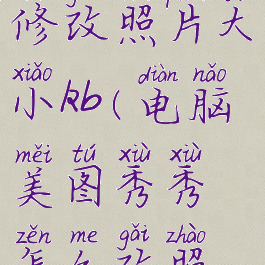 修改照片大
xiǎo diàn nǎo
小kb(电脑
měi tú xiù xiù
美图秀秀
zěn me gǎi zhào
怎么改照